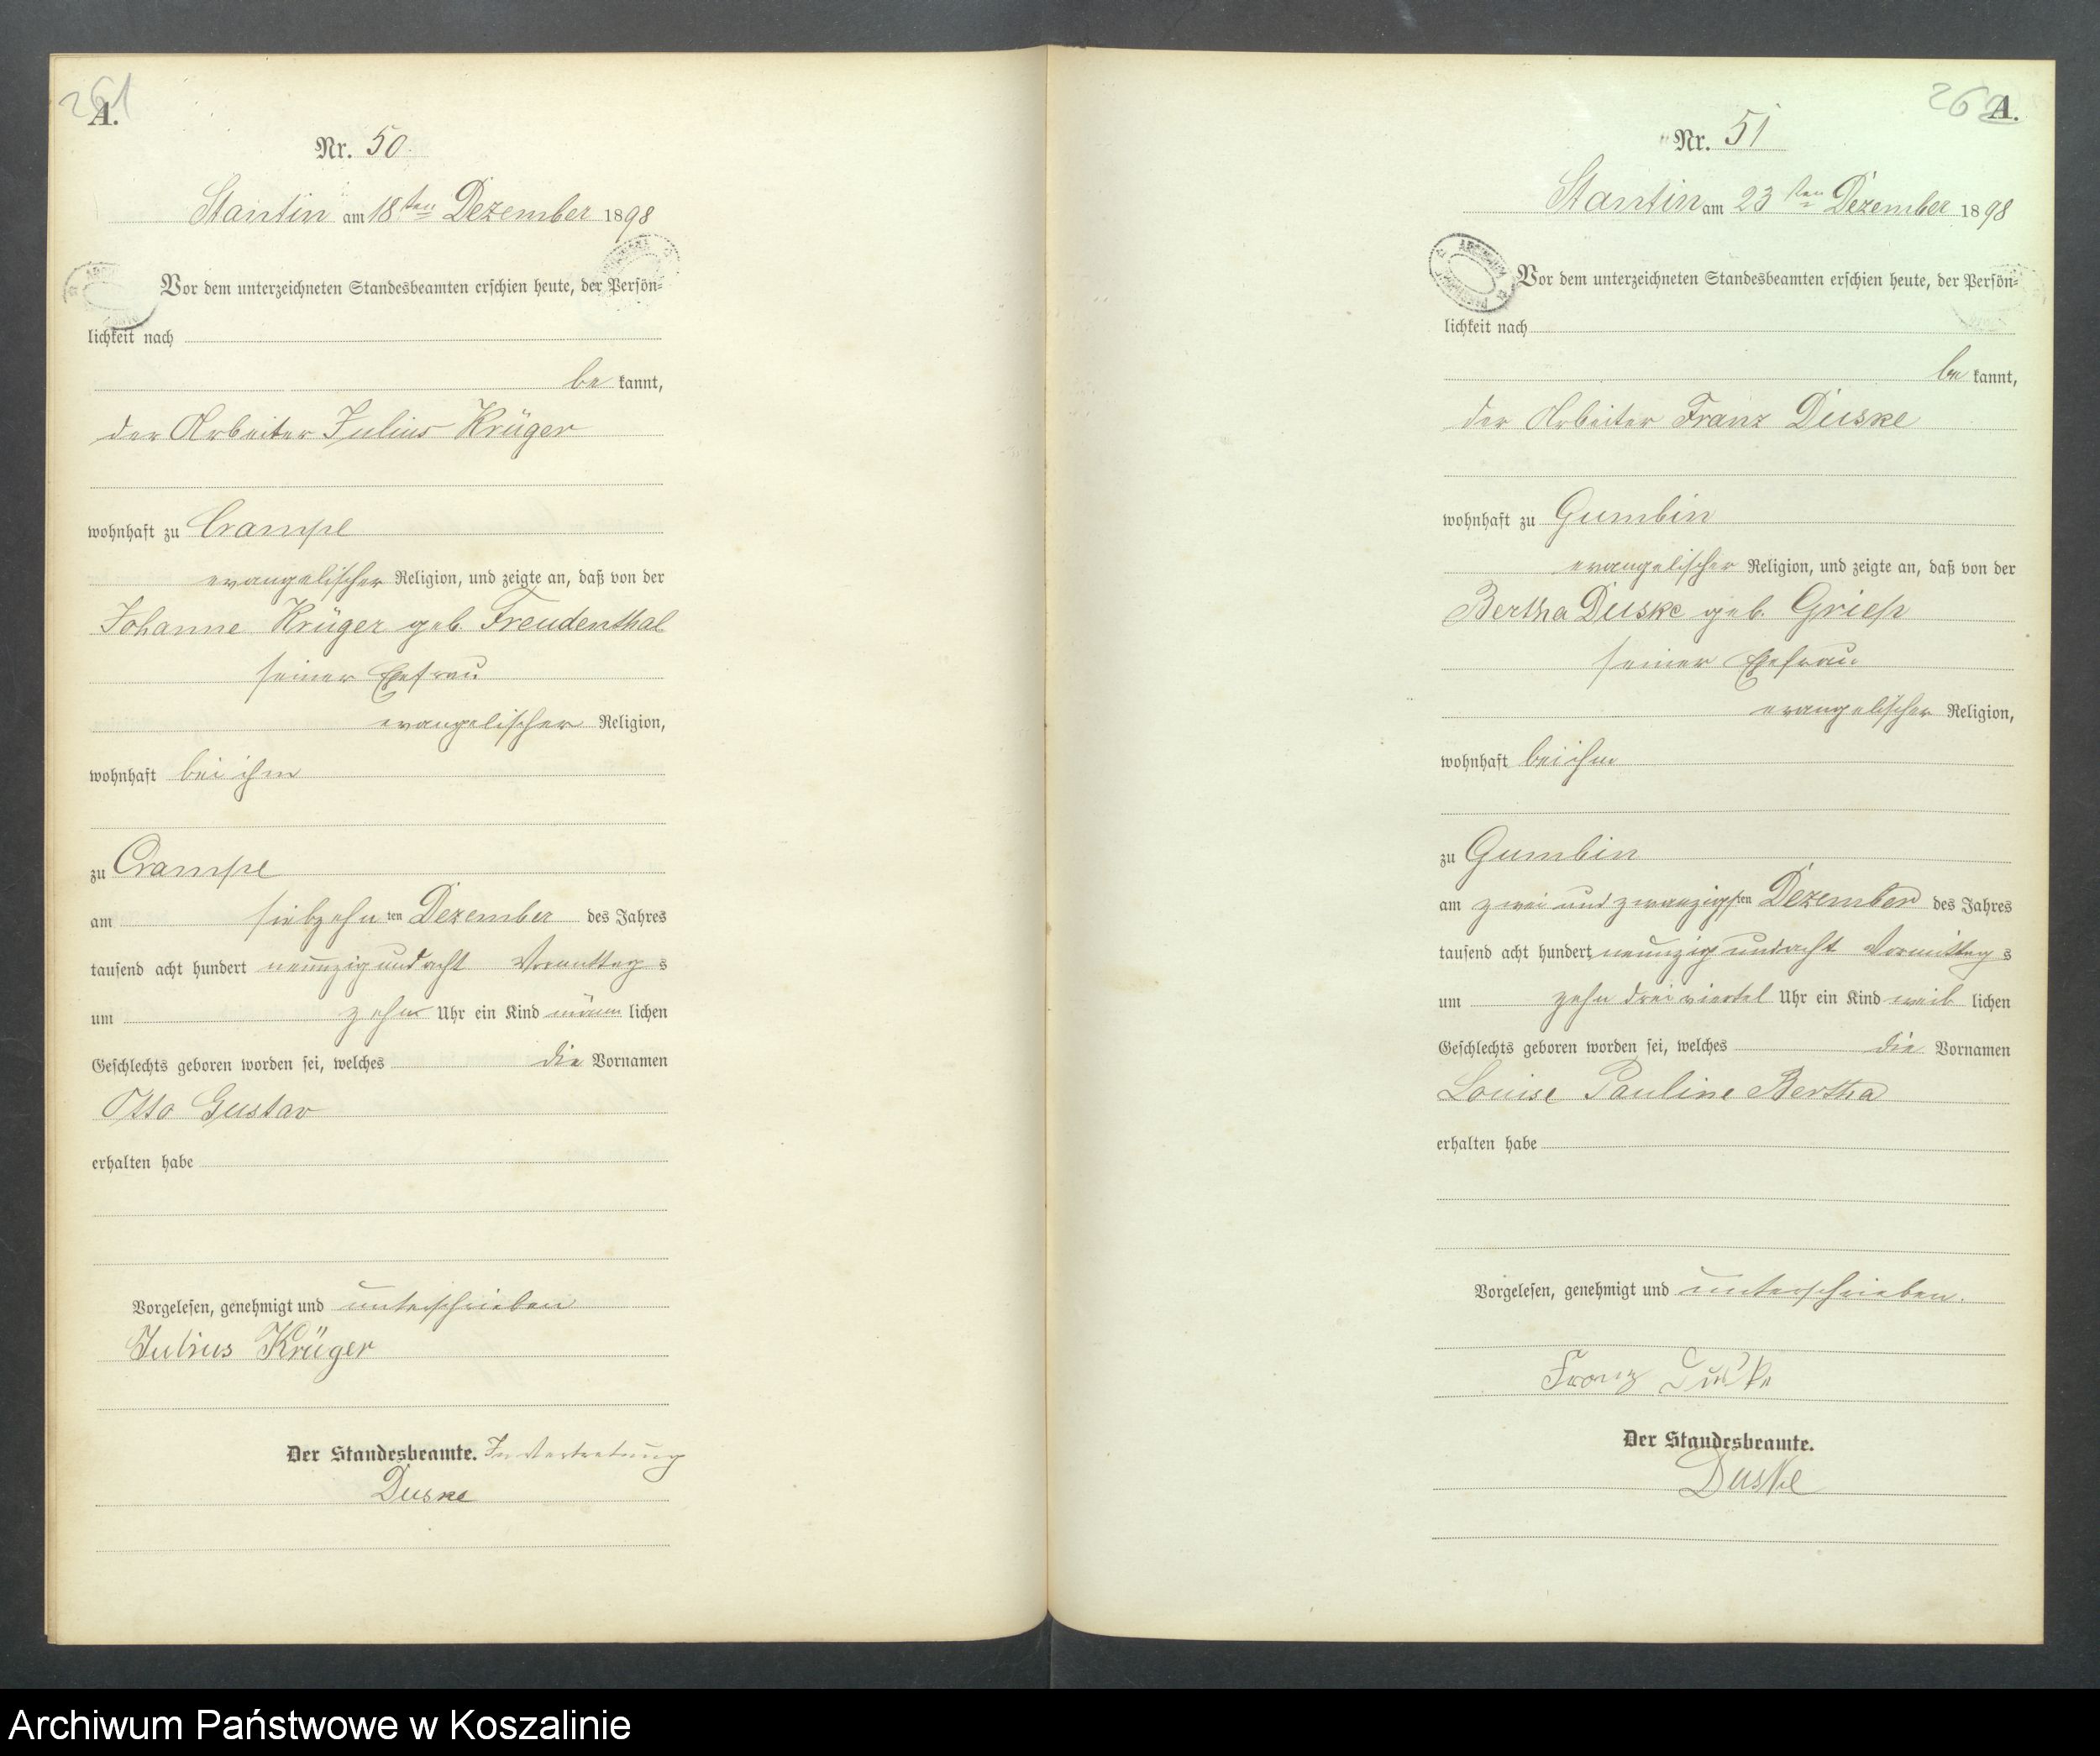 261
A.
Nr. 50.
Stantin am 18ten Dezember 1898
Vor dem unterzeichneten Standesbeamten erschien heute, der Persön=
lichkeit nach
be kannt,
der Arbeiter Julius Krüger
wohnhaft zu Crampe
evangelischer Religion, und zeigte an, daß von der
Johanne Krüger geb. Freudenthal
seiner Ehefrau
evangelischer Religion,
wohnhaft bei ihm
zu Crampe
am siebzehn ten Dezember des Jahres
tausend acht hundert neunzig und acht Vormittag s
um zehn Uhr ein Kind männ lichen
Geschlechts geboren worden sei, welches die Vornamen
Otto Gustav
erhalten habe
Vorgelesen, genehmigt und unterschrieben
Julius Krüger
Der Standesbeamte. In Vertretung
Duske
262
A.
Nr. 51
Stantin am 23ten Dezember 1898
Vor dem unterzeichneten Standesbeamten erschien heute, der Persön=
lichkeit nach
be kannt,
der Arbeiter Franz Duske
wohnhaft zu Gumbin
evangelischer Religion, und zeigte an, daß von der
Bertha Duske geb. Griep
seiner Ehefrau
evangelischer Religion,
wohnhaft bei ihm
zu Gumbin
am zwei und zwanzigsten Dezember des Jahres
tausend acht hundert neunzig und acht Vormittag s
um zehn drei viertel Uhr ein Kind weib lichen
Geschlechts geboren worden sei, welches die Vornamen
Louise Pauline Bertha
erhalten habe
Vorgelesen, genehmigt und unterschrieben.
Franz Duske
Der Standesbeamte.
Duske
Archiwum Państwowe w Koszalinie